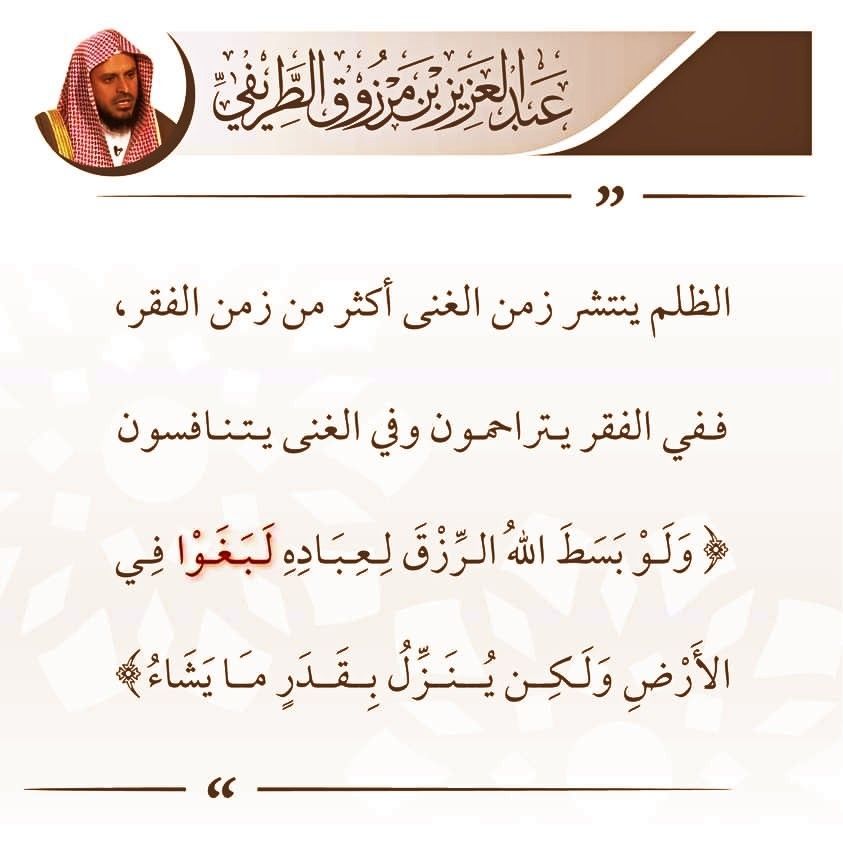 عبد العزيز بن مرزوق الطَّرِيفيّ
”
الظلم ينتشر زمن الغنى أكثر من زمن الفقر،
ففي الفقر يتراحمون وفي الغنى يتنافسون
﴿ وَلَوْ بَسَطَ اللهُ الرِّزْقَ لِعِبَادِهِ لَبَغَوْا فِي
الأَرْضِ وَلَكِن يُنَزِّلُ بِقَدَرٍ مَا يَشَاءُ﴾
“